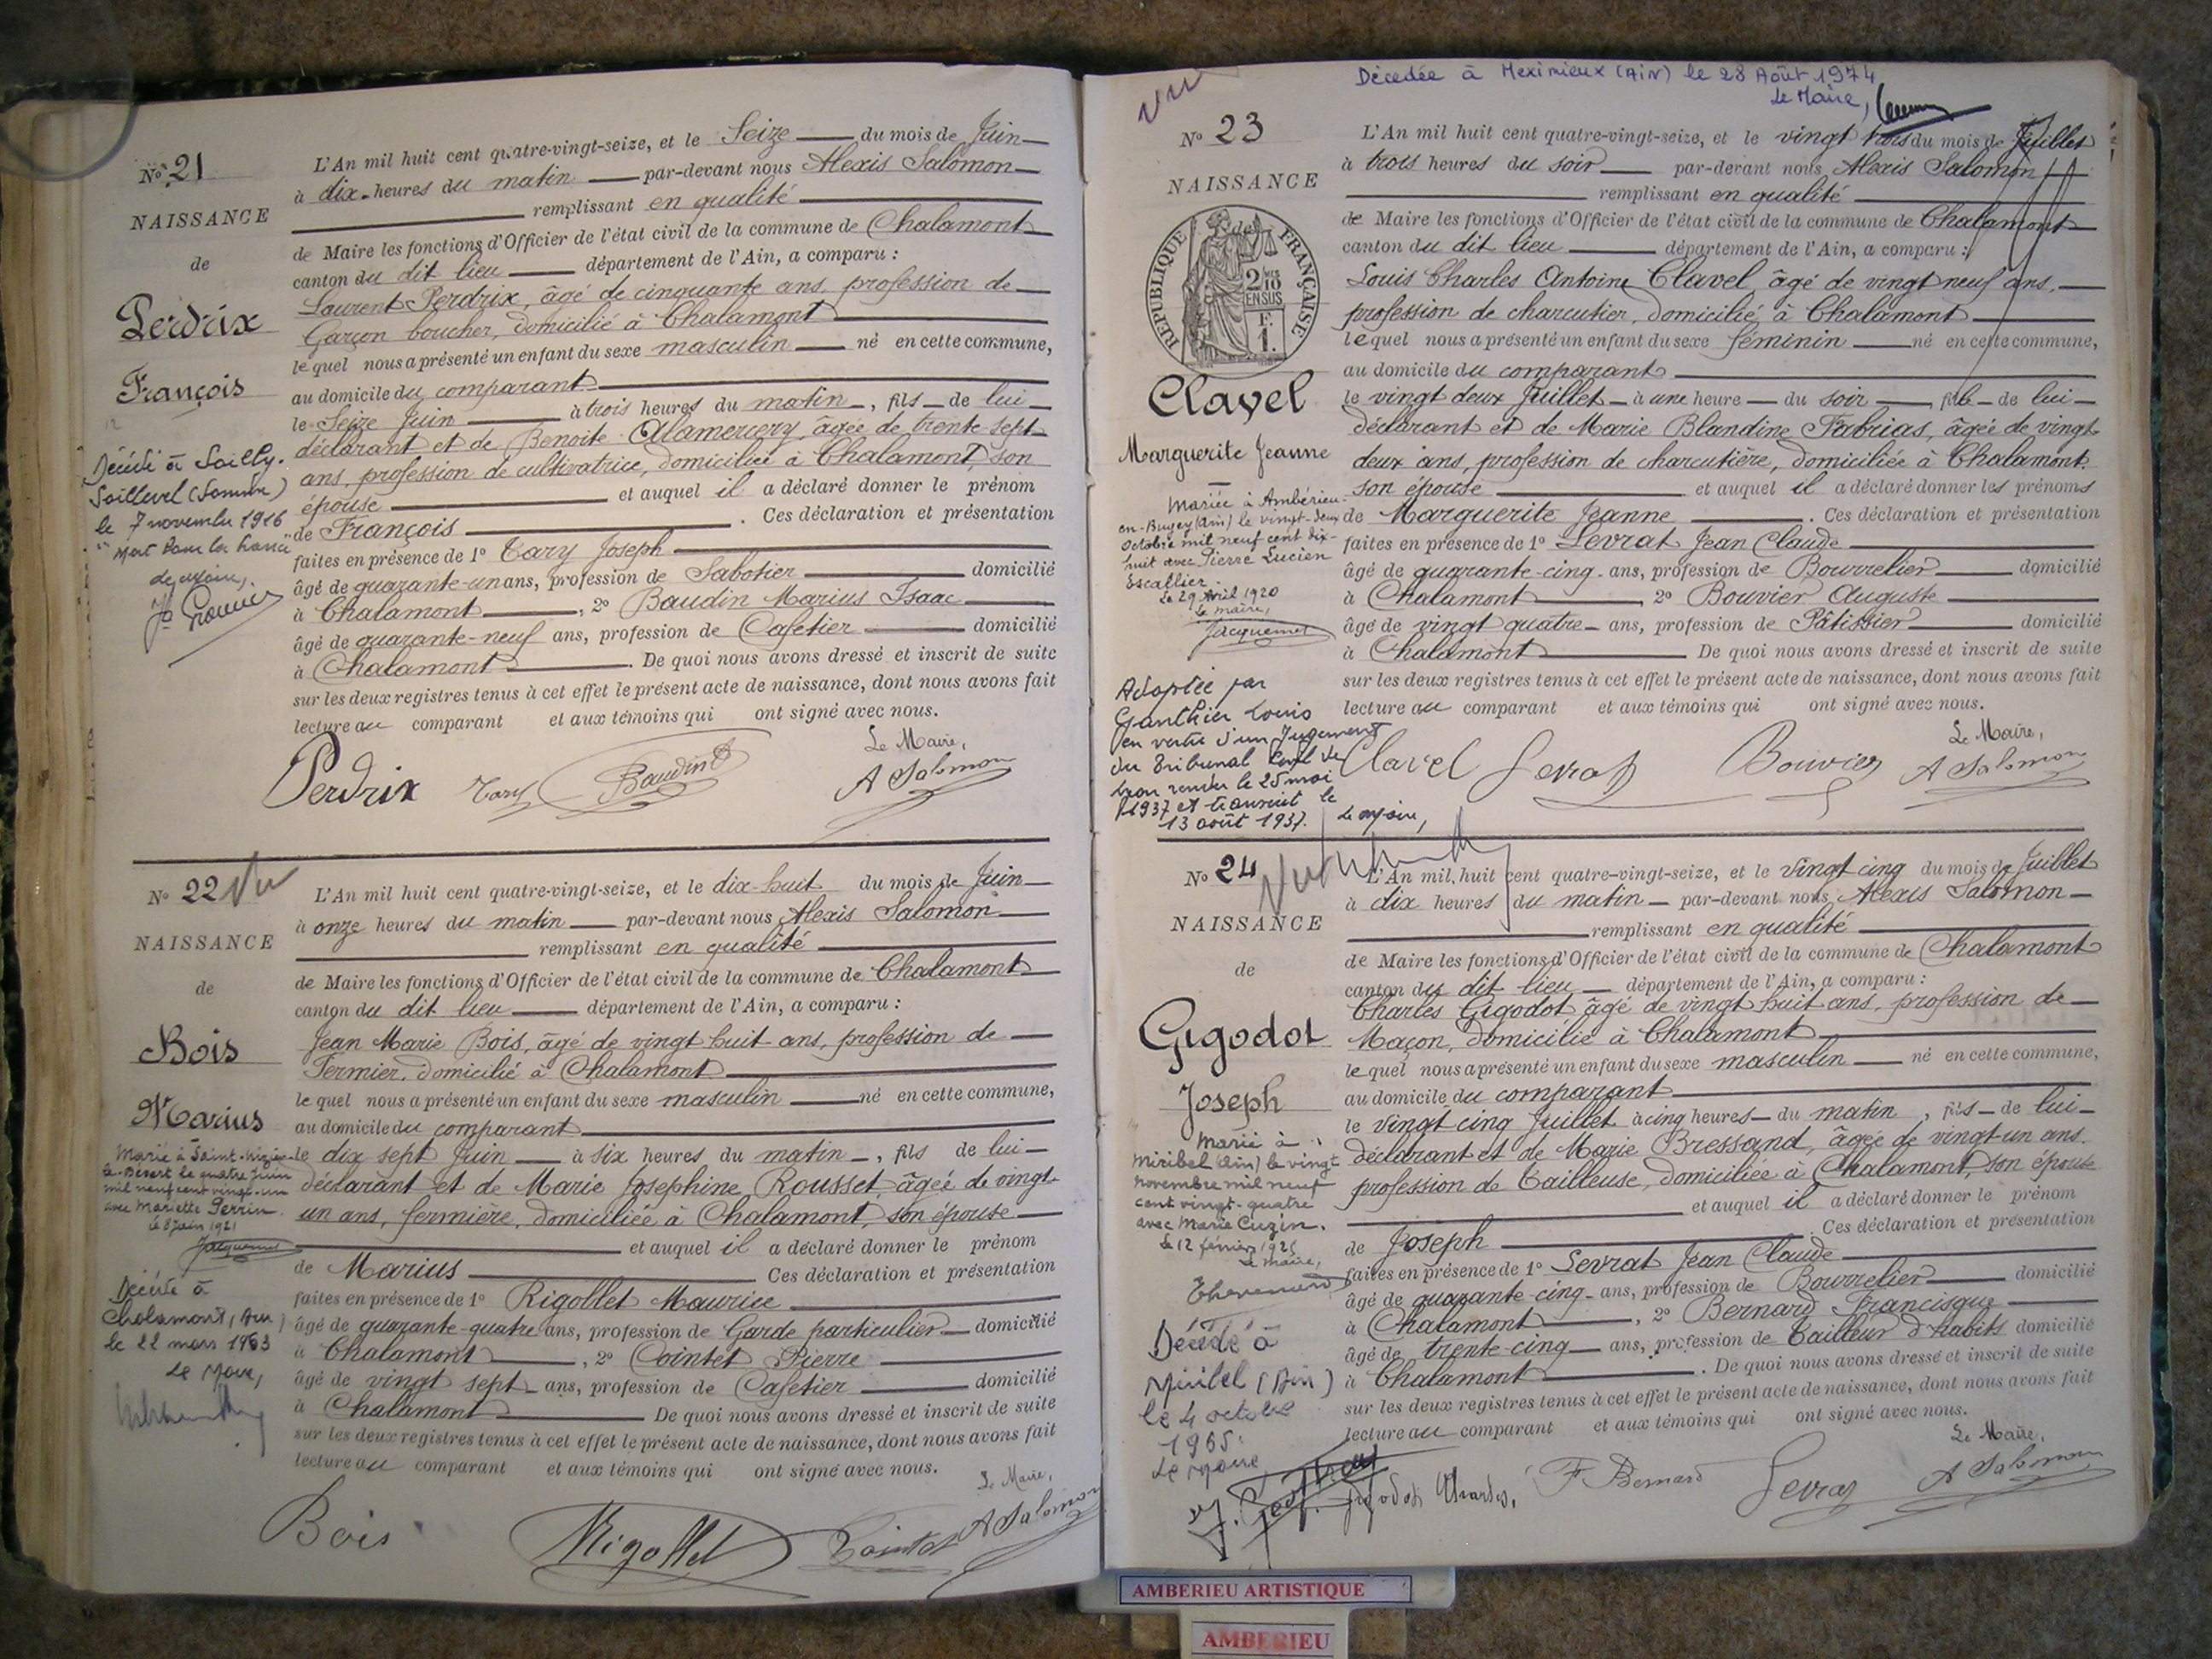 No 21
NAISSANCE
de
Perdrix
François
Décédé à Sailly-
Saillisel (Somme)
le 7 novembre 1916
"Mort Pour la France"
L'An mil huit cent quatre-vingt-seize, et le Seize du mois de Juin
à dix heures du matin par-devant nous Alexis Salomon
remplissant en qualité
de Maire les fonctions d'Officier de l'état civil de la commune de Chalamont
canton du dit lieu département de l'Ain, a comparu :
Laurent Perdrix, âgé de cinquante ans, profession de
Garçon boucher, domicilié à Chalamont
lequel nous a présenté un enfant du sexe masculin né en cette commune,
au domicile du comparant
le Seize Juin à trois heures du matin, fils de lui
déclarant et de Benoite Alamercery, âgée de trente sept
ans, profession de cultivatrice, domiciliée à Chalamont, son
épouse et auquel il a déclaré donner le prénom
de François. Ces déclaration et présentation
faites en présence de 1° Tary Joseph
âgé de quarante-un ans, profession de Sabotier domicilié
à Chalamont, 2° Baudin Marius Isaac
âgé de quarante-neuf ans, profession de Cafetier domicilié
à Chalamont. De quoi nous avons dressé et inscrit de suite
sur les deux registres tenus à cet effet le présent acte de naissance, dont nous avons fait
lecture au comparant et aux témoins qui ont signé avec nous.
Le Maire,
Perdrix Tary Baudin A Salomon
No 22 Vu
NAISSANCE
de
Bois
Marius
Marié à Saint-Nizier-
le-Désert le quatre Juin
mil neuf cent vingt-un
avec Mariette Perrin.
le 8 juin 1921
Jacquemet
Décédé à
Chalamont, (Ain)
le 22 mars 1963
Le Maire,
L'An mil huit cent quatre-vingt-seize, et le dix-huit du mois de Juin
à onze heures du matin par-devant nous Alexis Salomon
remplissant en qualité
de Maire les fonctions d'Officier de l'état civil de la commune de Chalamont
canton du dit lieu département de l'Ain, a comparu :
Jean Marie Bois, âgé de vingt huit ans, profession de
Fermier, domicilié à Chalamont
lequel nous a présenté un enfant du sexe masculin né en cette commune,
au domicile du comparant
le dix sept Juin à six heures du matin, fils de lui
déclarant et de Marie Josephine Rousset, âgée de vingt-
un ans, fermière, domiciliée à Chalamont, son épouse
et auquel il a déclaré donner le prénom
de Marius Ces déclaration et présentation
faites en présence de 1° Rigollet Maurice
âgé de quarante-quatre ans, profession de Garde particulier domicilié
à Chalamont, 2° Cointet Pierre
âgé de vingt sept ans, profession de Cafetier domicilié
à Chalamont De quoi nous avons dressé et inscrit de suite
sur les deux registres tenus à cet effet le présent acte de naissance, dont nous avons fait
lecture au comparant et aux témoins qui ont signé avec nous.
Le Maire,
Bois Rigollet Cointet A Salomon
Vu
Décédée à Meximieux (Ain) le 28 Août 1974
Le Maire,
No 23
NAISSANCE
RÉPUBLIQUE FRANÇAISE
2/10 EN SUS
F. 1.
Clavel
Marguerite Jeanne
Mariée à Ambérieu-
en-Bugey (Ain) le vingt-deux
Octobre mil neuf cent dix-
huit avec Pierre Lucien
Escallier.
Le 29 Avril 1920
Le maire,
Jacquemet
Adoptée par
Gauthier Louis
en vertu d'un Jugement
du Tribunal Civil de
Lyon rendu le 25 mai
1937 et transcrit le
13 août 1937. Le maire,
L'An mil huit cent quatre-vingt-seize, et le vingt trois du mois de Juillet
à trois heures du soir par-devant nous Alexis Salomon
remplissant en qualité
de Maire les fonctions d'Officier de l'état civil de la commune de Chalamont
canton du dit lieu département de l'Ain, a comparu :
Louis Charles Antoine Clavel, âgé de vingt neuf ans,
profession de charcutier, domicilié à Chalamont
lequel nous a présenté un enfant du sexe féminin né en cette commune,
au domicile du comparant
le vingt deux Juillet à une heure du soir, fille de lui
déclarant et de Marie Blandine Fabrias, âgée de vingt-
deux ans, profession de charcutière, domiciliée à Chalamont
son épouse et auquel il a déclaré donner les prénoms
de Marguerite Jeanne. Ces déclaration et présentation
faites en présence de 1° Levrat Jean Claude
âgé de quarante-cinq ans, profession de Bourrelier domicilié
à Chalamont, 2° Bouvier Auguste
âgé de vingt quatre ans, profession de Pâtissier domicilié
à Chalamont De quoi nous avons dressé et inscrit de suite
sur les deux registres tenus à cet effet le présent acte de naissance, dont nous avons fait
lecture au comparant et aux témoins qui ont signé avec nous.
Le Maire,
Clavel Levrat Bouvier A Salomon
No 24 Vu
NAISSANCE
de
Gigodot
Joseph
Marié à
Miribel (Ain) le vingt
novembre mil neuf
cent vingt-quatre
avec Marie Cuzin.
Le 12 février 1925
Le maire,
Décédé à
Miribel (Ain)
le 4 octobre
1965.
Le Maire
L'An mil huit cent quatre-vingt-seize, et le vingt cinq du mois de Juillet
à dix heures du matin par-devant nous Alexis Salomon
remplissant en qualité
de Maire les fonctions d'Officier de l'état civil de la commune de Chalamont
canton du dit lieu département de l'Ain, a comparu :
Charles Gigodot âgé de vingt huit ans, profession de
Maçon, domicilié à Chalamont
lequel nous a présenté un enfant du sexe masculin né en cette commune,
au domicile du comparant
le vingt cinq Juillet à cinq heures du matin, fils de lui
déclarant et de Marie Bressand, âgée de vingt-un ans,
profession de Tailleuse, domiciliée à Chalamont, son épouse
et auquel il a déclaré donner le prénom
de Joseph. Ces déclaration et présentation
faites en présence de 1° Levrat Jean Claude
âgé de quarante-cinq ans, profession de Bourrelier domicilié
à Chalamont, 2° Bernard Francisque
âgé de trente-cinq ans, profession de Tailleur d'habits domicilié
à Chalamont. De quoi nous avons dressé et inscrit de suite
sur les deux registres tenus à cet effet le présent acte de naissance, dont nous avons fait
lecture au comparant et aux témoins qui ont signé avec nous.
Le Maire,
gigodot Charles, F Bernard Levrat A Salomon
AMBERIEU ARTISTIQUE
AMBERIEU